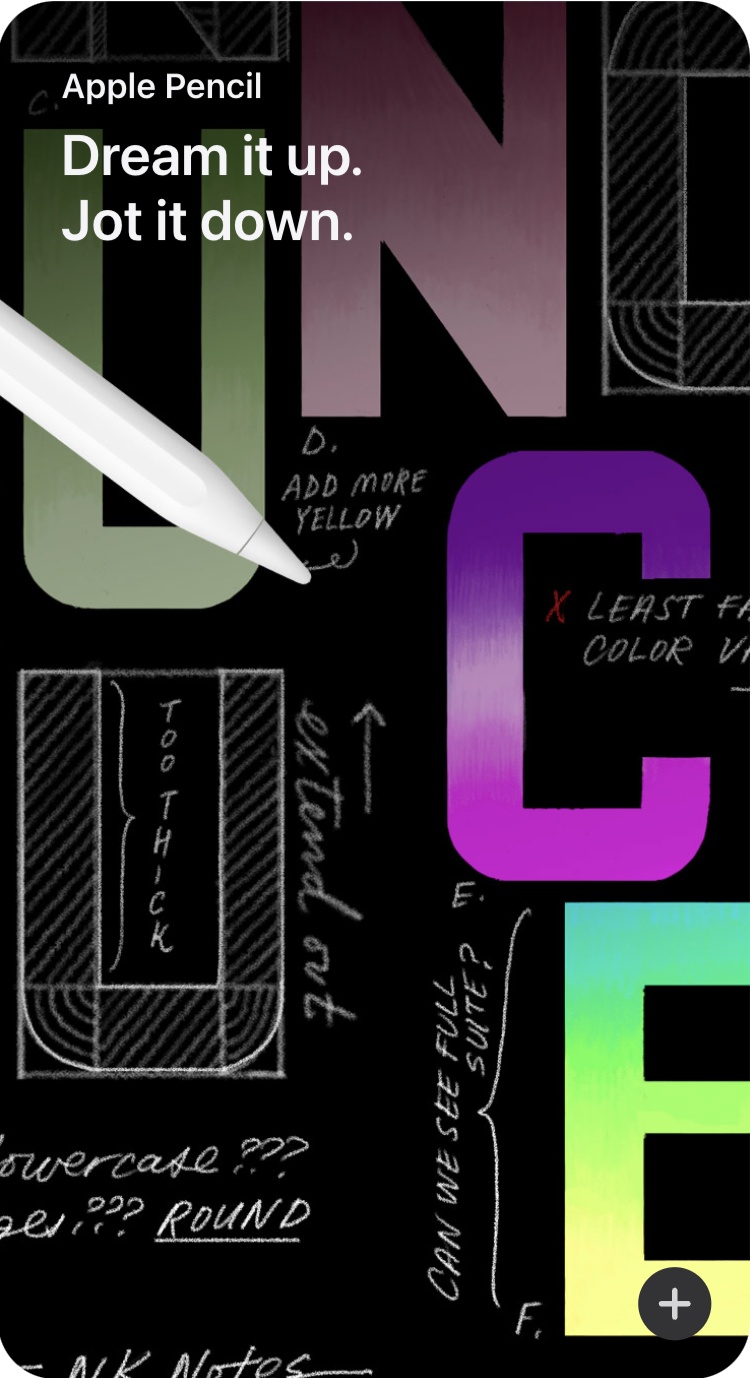 C.
Apple Pencil
Dream it up.
Jot it down.
U
N
D.
ADD MORE
YELLOW
C
X LEAST
COLOR
U
TOO THICK
extend out
E.
CAN WE SEE FULL
SUITE?
E
lowercase ???
??? ROUND
F.
NK Notes